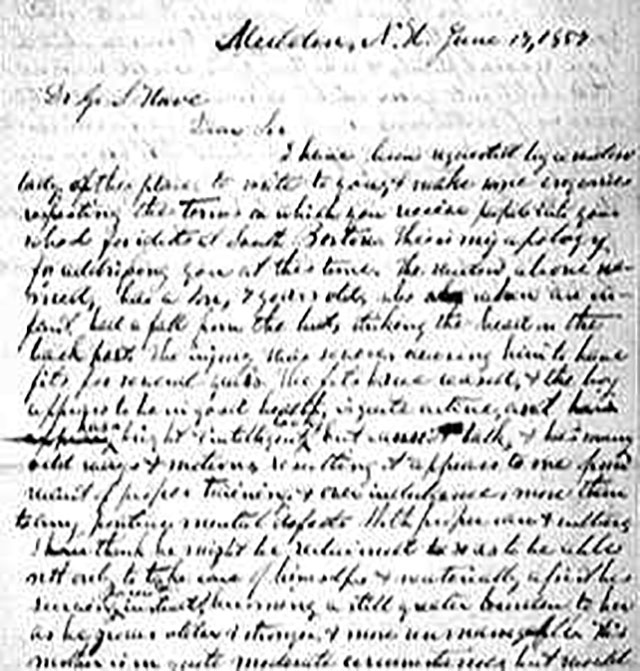 N.H. June 17, 185
Dr
Dear Sir
I have been requested by a widow
lady of this place to write to you, & make some enquiries
respecting the Terms on which you receive pupils into your
school for idiots at South Boston. This is my apology
for addressing you at this time. The widow, above
has a son, years old, who when an in-
fant had a fall from the striking the head on the
back part. The injury was severe causing him to have
fits for several years. The fits have ceased, & the boy
appears to be in good health, is quite active, and
bright & intelligent but cannot talk, & has many
odd ways & motions resulting it appears to me from
want of proper training & over indulgence, more than
to any mental defects. With proper care &
I think he might be so as to be able
not only to take care of himself, &
instead of becoming a still greater burden to her
as he grows older & stronger & more unmanageable. His
mother is in quite moderate circumstances, but would